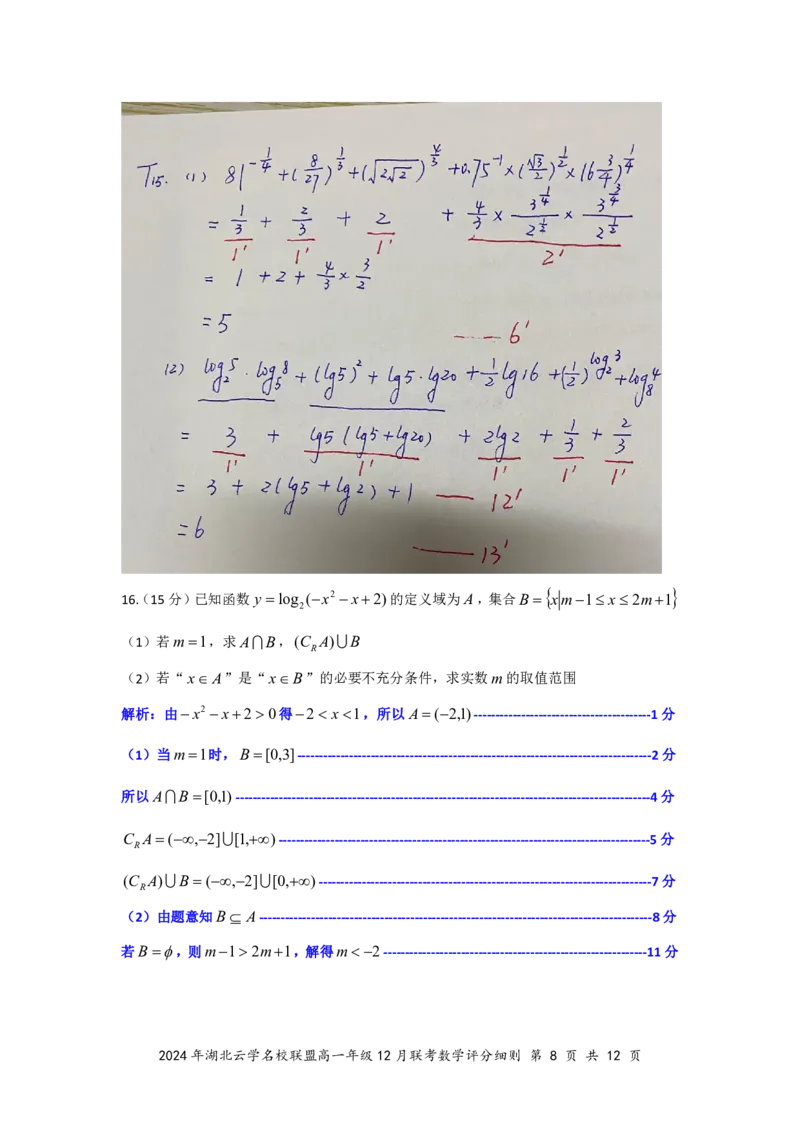 T15. (1) 81^{-1/4} + (8/27)^{1/3} + (√(2√2))^{4/3} + 0.75^{-1} × (√3/2)^{1/2} × (6 3/4)^{1/4}
= 1/3 + 2/3 + 2 + 4/3 × 3^{1/4}/2^{1/2} × 3^{3/4}/2^{1/2}
1' 1' 1' 2'
= 1 + 2 + 4/3 × 3/2
= 5
---- 6'
(2) log₂5 · log₅8 + (lg5)² + lg5 · lg20 + 1/2 lg16 + (1/2)^{log₂3} + log₈4
= 3 + lg5 (lg5 + lg20) + 2lg2 + 1/3 + 2/3
1' 1' 1' 1' 1'
= 3 + 2(lg5 + lg2) + 1 —— 12'
= 6
—— 13'
16.(15 分)已知函数 y = log₂(−x² − x + 2) 的定义域为 A,集合 B = {x|m−1 ≤ x ≤ 2m+1}
(1)若 m = 1,求 A⋂B,(C_R A)⋃B
(2)若“ x∈A”是“ x∈B”的必要不充分条件,求实数 m 的取值范围
解析:由 −x² − x + 2 > 0 得 −2 < x < 1,所以 A = (−2,1) ----------------------------------------1 分
(1)当 m = 1 时, B = [0,3] --------------------------------------------------------------------------------2 分
所以 A⋂B = [0,1) ----------------------------------------------------------------------------------------------4 分
C_R A = (−∞,−2]⋃[1,+∞) ------------------------------------------------------------------------------------5 分
(C_R A)⋃B = (−∞,−2]⋃[0,+∞) ---------------------------------------------------------------------------7 分
(2)由题意知 B ⊆ A -----------------------------------------------------------------------------------------8 分
若 B = ϕ,则 m−1 > 2m+1,解得 m < −2 ------------------------------------------------------------11 分
2024 年湖北云学名校联盟高一年级 12 月联考数学评分细则 第 8 页 共 12 页